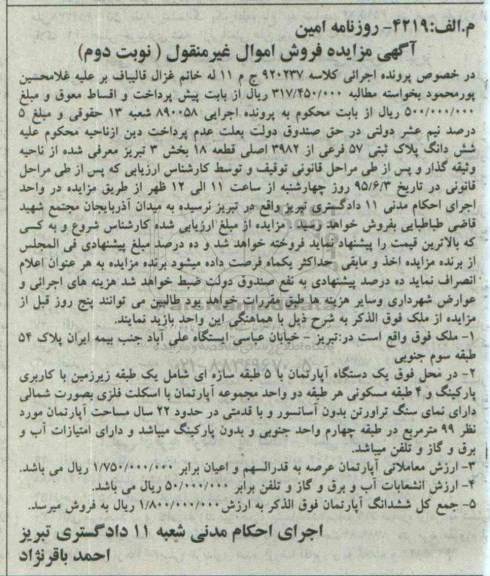 م.الف:۴۲۱۹- روزنامه امین
آگهی مزایده فروش اموال غیرمنقول ( نوبت دوم)
در خصوص پرونده اجرائی کلاسه ۹۲۰۲۳۷ ج م ۱۱ له خانم غزال قالیباف بر علیه غلامحسین
پورمحمود بخواسته مطالبه ۳۱۷/۴۵۰/۰۰۰ ریال از بابت پیش پرداخت و اقساط معوق و مبلغ
۵۰۰/۰۰۰/۰۰۰ ریال از بابت محکوم به پرونده اجرایی ۸۹۰۰۵۸ شعبه ۱۳ حقوقی و مبلغ ۵
درصد نیم عشر دولتی در حق صندوق دولت بعلت عدم پرداخت دین ازناحیه محکوم علیه
شش دانگ پلاک ثبتی ۵۷ فرعی از ۳۹۸۲ اصلی قطعه ۱۸ بخش ۳ تبریز معرفی شده از ناحیه
وثیقه گذار و پس از طی مراحل قانونی توقیف و توسط کارشناس ارزیابی که پس از طی مراحل
قانونی در تاریخ ۹۵/۶/۳ روز چهارشنبه از ساعت ۱۱ الی ۱۲ ظهر از طریق مزایده در واحد
اجرای احکام مدنی ۱۱ دادگستری تبریز واقع در تبریز نرسیده به میدان آذربایجان مجتمع شهید
قاضی طباطبایی بفروش خواهد رسید . مزایده از مبلغ ارزیابی شده کارشناس شروع و به کسی
که بالاترین قیمت را پیشنهاد نماید فروخته خواهد شد و ده درصد مبلغ پیشنهادی فی المجلس
از برنده مزایده اخذ و مابقی حداکثر یکماه فرصت داده میشود برنده مزایده به هر عنوان اعلام
انصراف نماید ده درصد پیشنهادی به نفع صندوق دولت ضبط خواهد شد هزینه های اجرائی و
عوارض شهرداری وسایر هزینه ها طبق مقررات خواهد بود طالبین می توانند پنج روز قبل از
مزایده از ملک فوق الذکر به شرح ذیل با هماهنگی این واحد بازید نمایند.
۱- ملک فوق واقع است در:تبریز - خیابان عباسی ایستگاه علی آباد جنب بیمه ایران پلاک ۵۴
طبقه سوم جنوبی
۲- در محل فوق یک دستگاه آپارتمان با ۵ طبقه سازه ای شامل یک طبقه زیرزمین با کاربری
پارکینگ و ۴ طبقه مسکونی هر طبقه دو واحد مجموعه آپارتمان با اسکلت فلزی بصورت شمالی
دارای نمای سنگ تراورتن بدون آسانسور و با قدمتی در حدود ۲۲ سال مساحت آپارتمان مورد
نظر ۹۹ مترمربع در طبقه چهارم واحد جنوبی و بدون پارکینگ میباشد و دارای امتیازات آب و
برق و گاز و تلفن میباشد.
۳- ارزش معاملاتی آپارتمان عرصه به قدرالسهم و اعیان برابر ۱/۷۵۰/۰۰۰/۰۰۰ ریال می باشد.
۴- ارزش انشعابات آب و برق و گاز و تلفن برابر ۵۰/۰۰۰/۰۰۰ ریال می باشد.
۵- جمع کل ششدانگ آپارتمان فوق الذکر به ارزش ۱/۸۰۰/۰۰۰/۰۰۰ ریال به فروش میرسد.
اجرای احکام مدنی شعبه ۱۱ دادگستری تبریز
احمد باقرنژاد